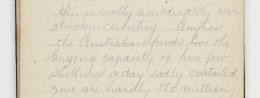 this is really a moderately war
stricken country. Anyhow
the Australian finds has the
buying capacity of his few
shillings a day sadly curtailed
& we are hardly the million